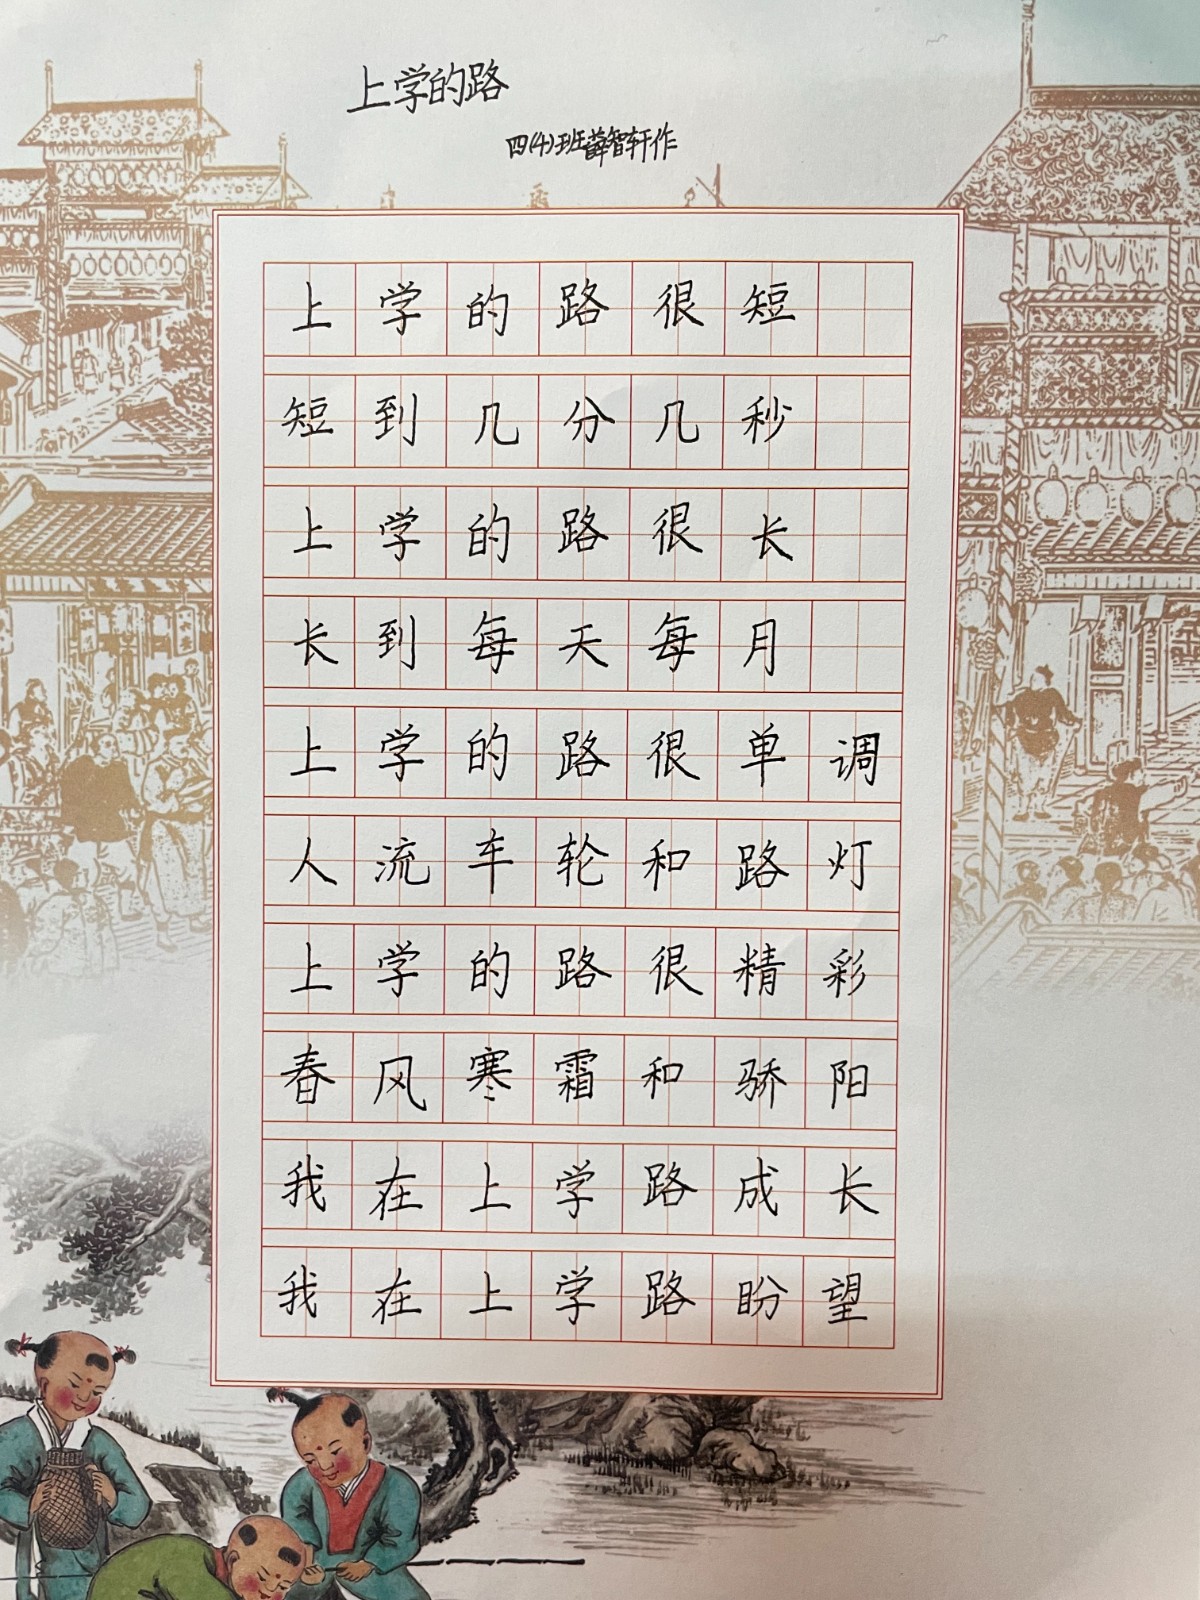 上学的路
四(4)班薛智轩作
上学的路很短
短到几分几秒
上学的路很长
长到每天每月
上学的路很单调
人流车轮和路灯
上学的路很精彩
春风寒霜和骄阳
我在上学路成长
我在上学路盼望